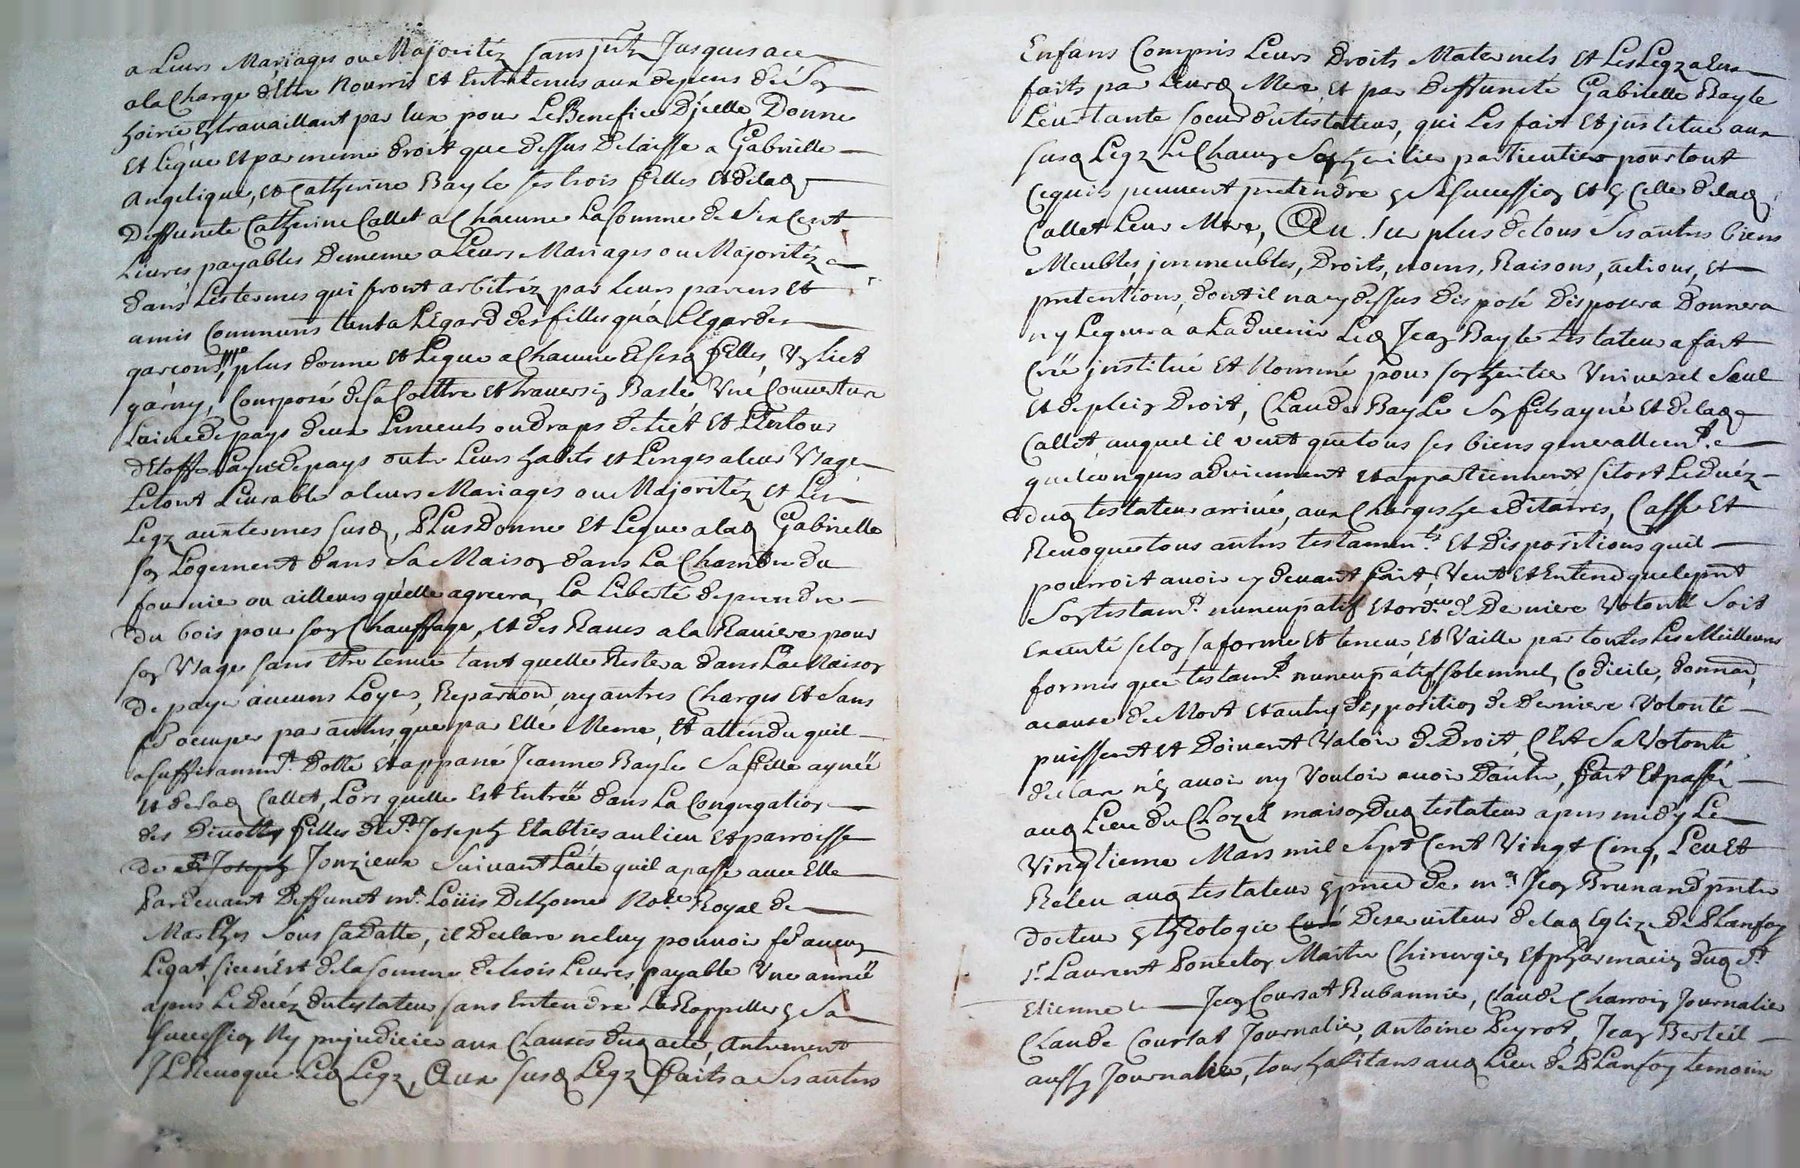 a Leurs Mariages ou Majoritéz sans jnt. Jusques a ce
a la Charge d'Etre Nourris et Entretenus aux depens de Sg
hoirie Eg travaillant par Eux pour Le Benefice D'jcelle, Donne
Et Legue Et par meme droit que dessus Delaisse a Gabrielle
Angelique, et Catherine Bayle ses trois filles et de lad.
Deffuncte Catherine Callet a Chacune La Somme de Six Cent
Livres payables De meme a Leurs Mariages ou Majoritéz e
dans Les termes qui seront arbitréz par Leurs parens et
amis Communs tant a L'Egard des filles qu'a L'Egard des
garçons, plus donne et Legue a Chacune de sesd. filles, Vg Lict
garny, Composé de sa Coittre et traversig Basle Vne Couverture
Laine de pays deux Linceuls ou draps de Lict Et L'Entour
d'Etoffe Laine de pays outre Leurs habits et Linges a leur Vsage
Le tout Livrable a leurs Mariages ou Majoritéz et Les
Legz aux termes susd., Plus Donne et Legue a lad. Gabrielle
sog Logement dans Sa Maisog dans La Chambre du
fournier ou ailleurs qu'elle agreera, La Liberté de prendre
du bois pour sog Chauffage, et des Raves a la Raviere pour
sog Vsage sans Etre tenue tant quelle Restera dans La Maisog
de payer aucuns Loyers, Reparaōns, ny autres Charges et sans
s'occuper par autres que par Elle Meme, Et attendu quil
a suffisamm.t Dotté Et appané Jeanne Bayle Sa fille aynée
et de lad. Callet, Lors quelle Est Entrée dans La Congregatiog
des Devottes filles de St. Joseph Etablies au lieu Et parroisse
de St. Joseph Jonzieux Suivant L'acte quil a passé avec Elle
Pardevant Deffunct mr. Loüis Delhomme No.re Royal de
Marlhes Sous sa datte, il declare ne luy pouvoir fe. aucug
Legat si ce n'Est de la somme de trois Livres, payable Vne année
apres Le decéz du testateur sans Entendre La Rappeller g Sa
Successiog Ny prejudicier aux Clauses dud. acte, autrement
Jl Revoque Led. Legz, Aux susd. Legz faits a Ses autres
Enfans Compris Leurs Droits Maternels Et Les Legz a Eux
faits par Leurd. Mere, Et par Deffuncte Gabrielle Bayle
Leur tante soeur du testateur, qui Les fait Et justitue aux
susd. Legz Le Chacug Sog heritier particulier pour tout
ce quis peuvent pretendre g Sa Successiog et g Celle de lad.
Callet Leur Mere, Au Surplus de tous Ses autres biens
Meubles jmmeubles, Droits, noms, Raisons, actions, Et
pretentions, dont il na cy dessus disposé disposera Donnera
ny Leguera a Ladvenir Led. Jeag Bayle testateur a fait
Créé justitué Et Nommé pour sog heritier Vniversel Seul
Et de pleig Droit, Claude Bayle Sog fils ayné Et de lad.
Callet auquel il veut que tous ses biens generallem.t e
quelconques adviennent et appartiennent sitost Le decéz
dud. testateur arrivé, aux Charges hereditaires, Casse Et
Revoque tous autres testamen.ts Et Dispositions quil
pourroit avoir cy devant fait, Veut Et Entend que le pnt
Sog testam.t nuncupatif Et ord.ce de Derniere Volonté Soit
executé selog sa forme Et teneur, Et Vaille par toutes Les Meilleures
formes que testam.t nuncupatif solemnel, Codicile, donnaōn,
a cause de Mort Et autre dispositiog de Derniere Volonté
puissent Et doivent Valoir de Droit, C'Est Sa Volonté
declare n'eg avoir ny Vouloir avoir D'autre, fait Et passé
aud. Lieu du Clozel maisog dud. testateur apres midy Le
Vingtieme Mars mil Sept Cent Vingt Cinq, Leu Et
Releu aud. testateur g pnce de mre Jeag Brunand pretre
docteur g theologie Curé Deserviteur de lad. Eglize de Planfoy
Sr Laurent Poncetog Maitre Chirurgieg Et pharmacieg dud. St.
Etienne Jeag Coursat Rubannier, Claude Charroig Journalier
Claude Coursat Journalier, Antoine Peyrot, Jeag Berteil
aussy Journalier, tous habitans aud. Lieu de Planfoy temoins